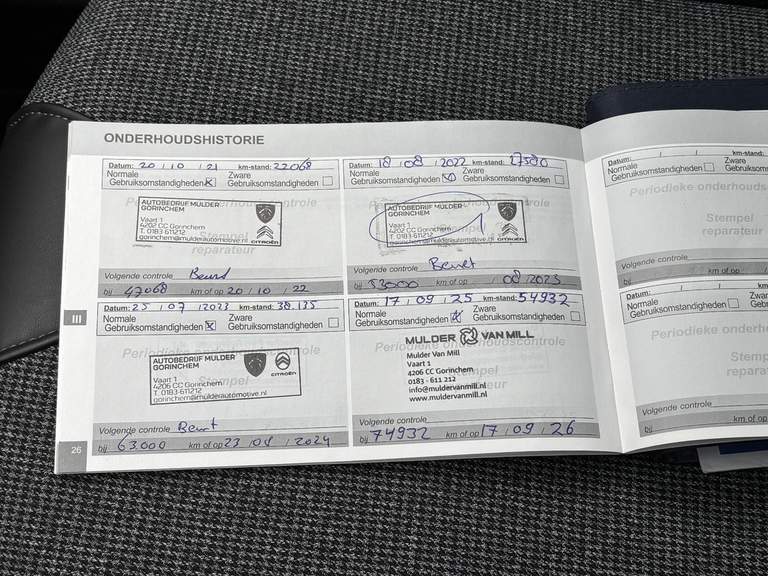 ONDERHOUDSHISTORIE
Datum: 20 / 10 / 21 km-stand: 22068
Normale Gebruiksomstandigheden Zware Gebruiksomstandigheden
Periodieke onderhoudscontrole
AUTOBEDRIJF MULDER
GORINCHEM
Vaart 1
4202 CC Gorinchem
T. 0183-611212
gorinchem@mulderautomotive.nl
CITROËN
Stempel
reparateur
Volgende controle Beurt
bij 47068 km of op 20 / 10 / 22
Datum: 18 / 08 / 2022 km-stand: 27580
Normale Gebruiksomstandigheden Zware Gebruiksomstandigheden
AUTOBEDRIJF MULDER
GORINCHEM
Vaart 1
4202 CC Gorinchem
T. 0183-611212
gorinchem@mulderautomotive.nl
CITROËN
reparateur
Volgende controle Beurt
bij 53000 km of op / 08 / 2023
Datum: 25 / 07 / 2023 km-stand: 38.135
Normale Gebruiksomstandigheden Zware Gebruiksomstandigheden
Periodieke onderhoudscontrole
AUTOBEDRIJF MULDER
GORINCHEM
Vaart 1
4206 CC Gorinchem
T. 0183-611212
gorinchem@mulderautomotive.nl
CITROËN
Stempel
reparateur
Volgende controle Beurt
bij 63.000 km of op 23 / 08 / 2024
Datum: 17 / 09 / 25 km-stand: 54932
Normale Gebruiksomstandigheden Zware Gebruiksomstandigheden
Periodieke onderhoudscontrole
MULDER VAN MILL
Mulder Van Mill
Vaart 1
4206 CC Gorinchem
0183 - 611 212
info@muldervanmill.nl
www.muldervanmill.nl
Volgende controle
bij 74932 km of op 17 / 09 / 26
III
26
Datum: / / km-stand:
Normale Gebruiksomstandigheden Zware
Periodieke onderhouds
Stempel
reparateur
Volgende controle
bij km of op
Datum: / / km-st
Normale Gebruiksomstandigheden
Periodieke onderh
Stemp
reparat
Volgende controle
bij km of op